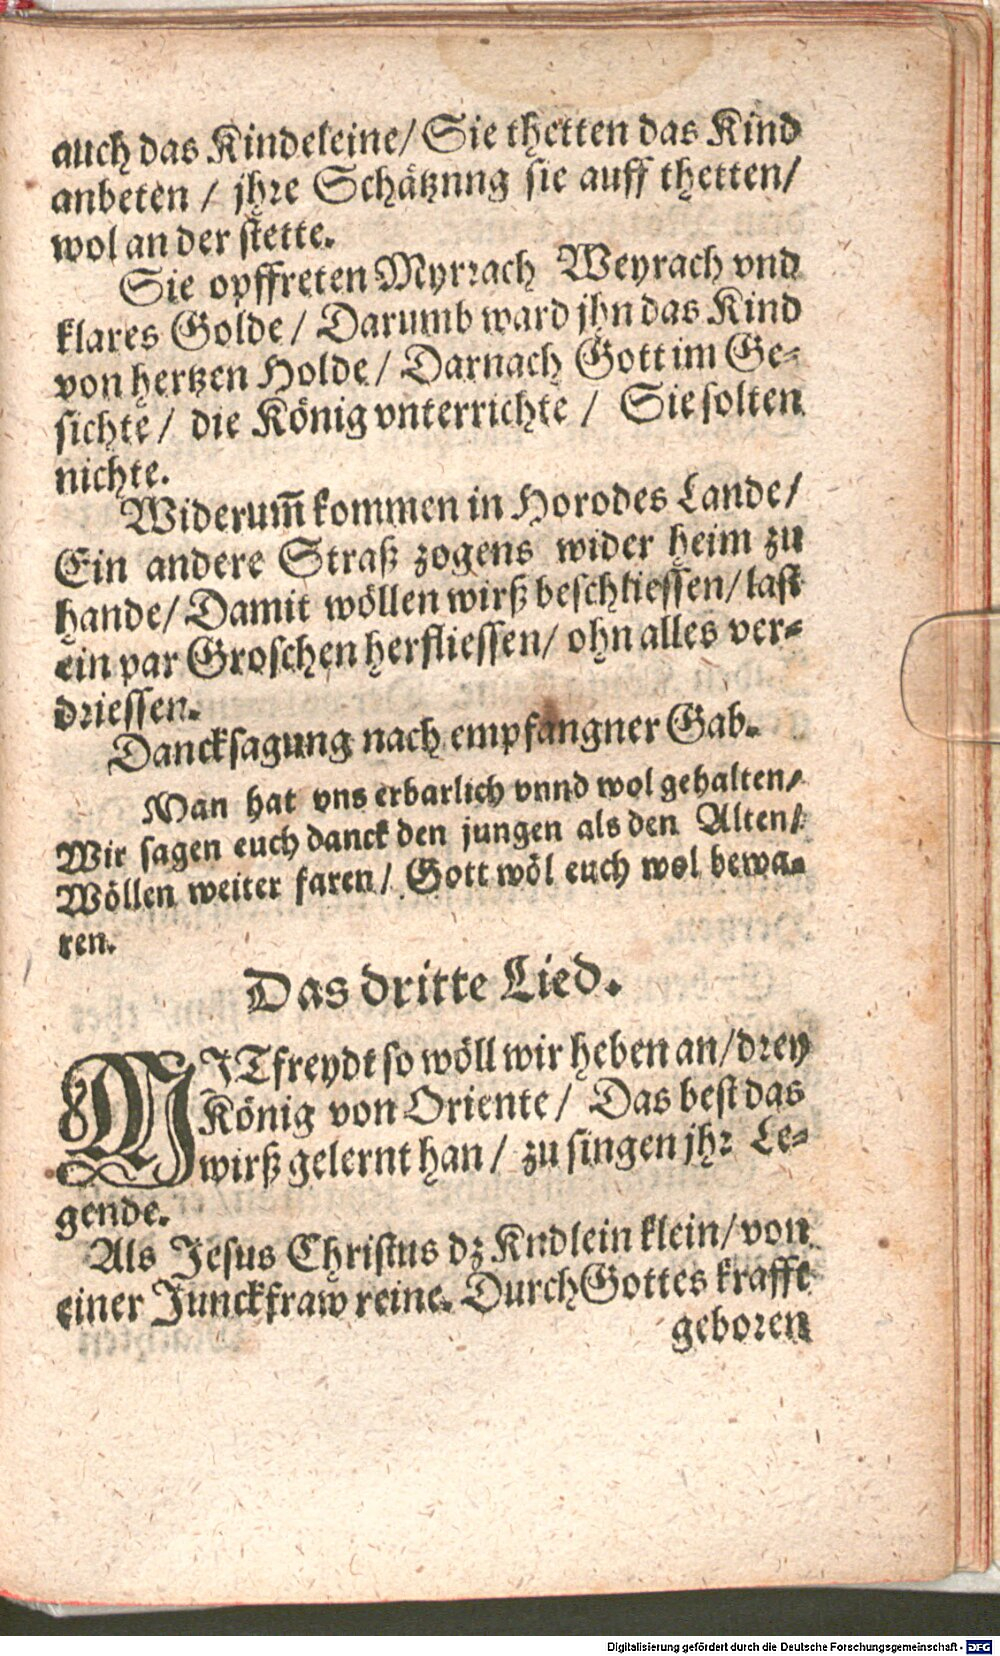 auch das Kindeleine/ Sie thetten das Kind
anbeten / jhre Schätznng sie auff thetten/
wol an der stette.
Sie opffreten Myrrach Weyrach vnd
klares Golde / Darumb ward jhn das Kind
von hertzen Holde / Darnach Gott im Ge-
sichte / die König vnterrichte / Sie solten
nichte.
Widerum̃ kommen in Horodes Lande/
Ein andere Straß zogens wider heim zu
hande/ Damit wöllen wirß beschliessen/ last
ein par Groschen herfliessen/ ohn alles ver-
driessen.
Dancksagung nach empfangner Gab.
Man hat vns erbarlich vnnd wol gehalten/
Wir sagen euch danck den jungen als den Alten/
Wöllen weiter faren/ Gott wöl euch wol bewa-
ren.
Das dritte Lied.
MITfreydt so wöll wir heben an/ drey
König von Oriente / Das best das
wirß gelernt han / zu singen jhr Le-
gende.
Als Jesus Christus dz Kndlein klein/ von
einer Junckfraw reine. Durch Gottes krafft
geboren
Digitalisierung gefördert durch die Deutsche Forschungsgemeinschaft - DFG